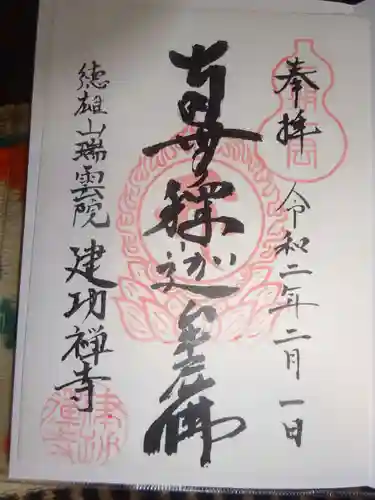 奉拝
令和二年二月一日
南無釋迦牟尼佛
徳雄山瑞雲院
建功禅寺